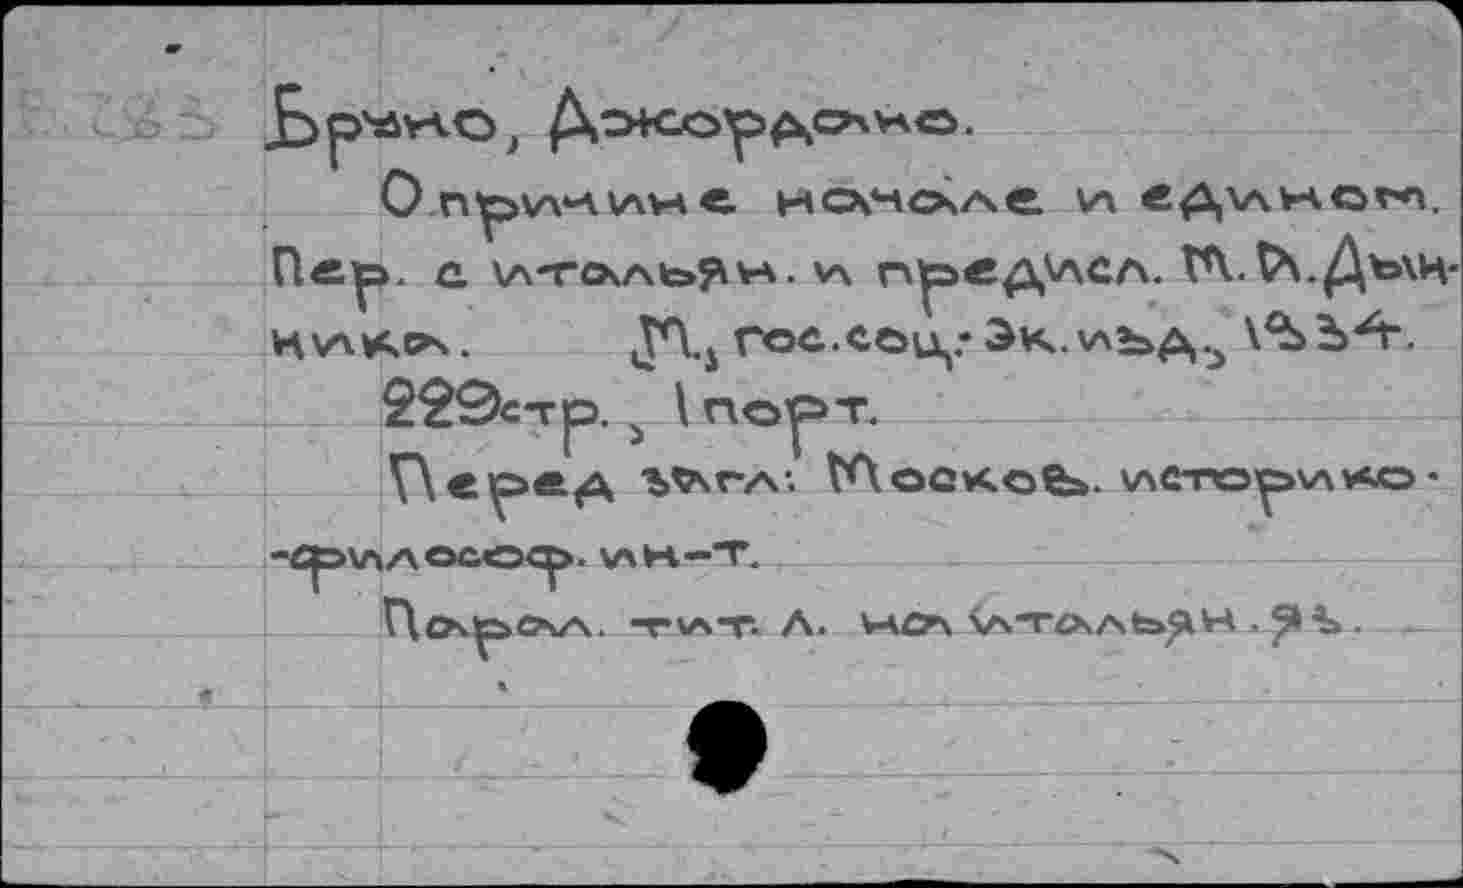 Бруно, Джордано.
О причине начале и едином.
Пер. с итальян. и предисл. М.А.Дын-
ника. М., гос.соц.-эк.изд., 1934.
229стр., 1 порт.
Перед загл: Московь. историко-
-философ. ин-т.
Парал. тит. л. на итальян. яз.